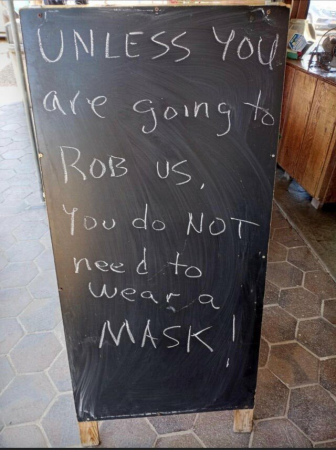 UNLESS YOU
are going to
ROB US,
You do NOT
need to
wear a
MASK!